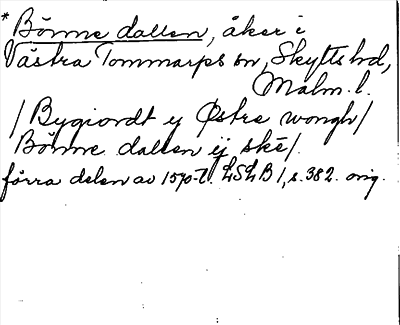 *Bönne dallen, åker i
Västra Tommarps sn, Skytts hd,
Malm. l.
/ Bygiordt ij Østre wongh /
Bönne dallen ij skē/.
förra delen av 1570-t. LSLB 1, s. 382. orig.